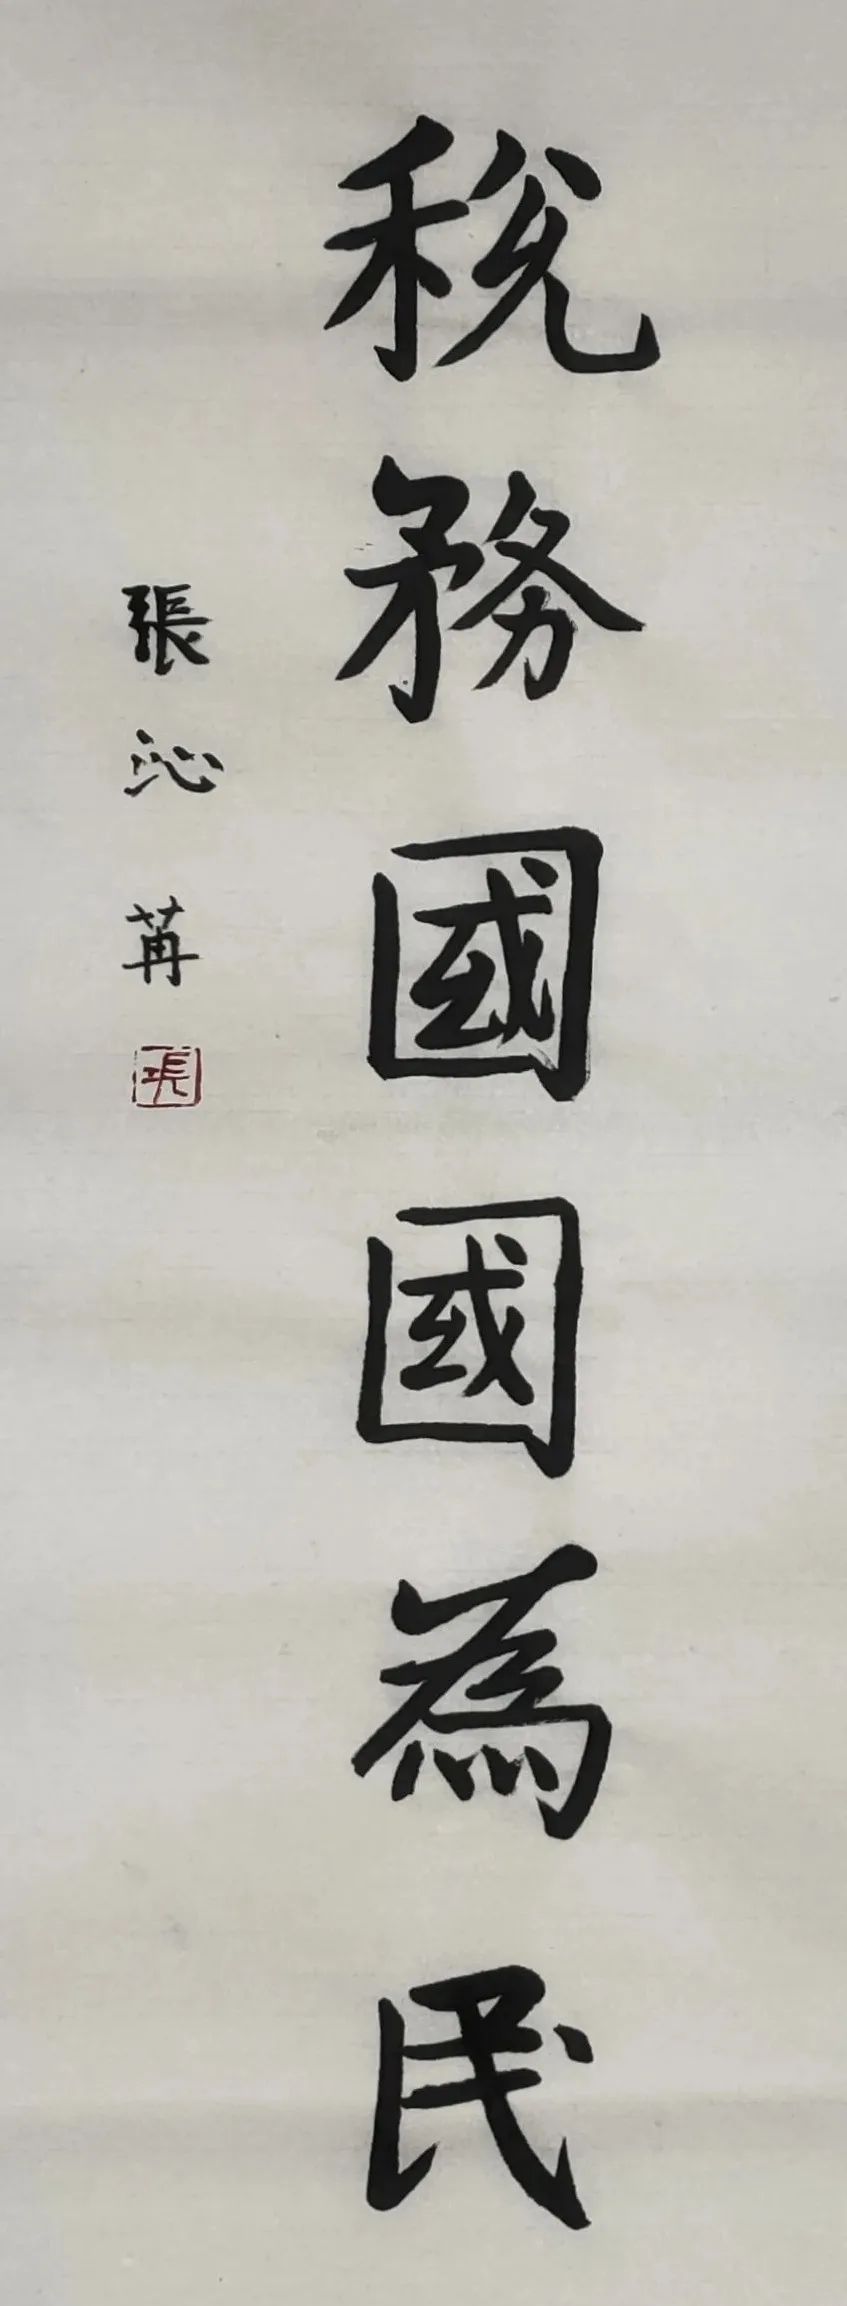 稅務國國為民
張沁苒
張